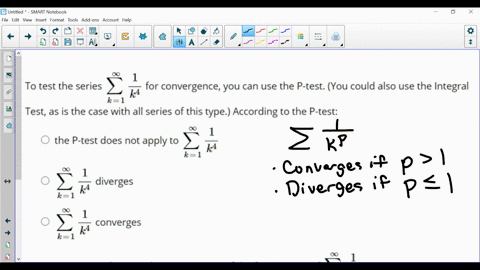 Untitled * - SMART Notebook
File Edit View Insert Format Tools Add-ons Account Help
To test the series $\sum_{k=1}^{\infty} \frac{1}{k^4}$ for convergence, you can use the P-test. (You could also use the Integral
Test, as is the case with all series of this type.) According to the P-test:
the P-test does not apply to $\sum_{k=1}^{\infty} \frac{1}{k^4}$
$\sum_{k=1}^{\infty} \frac{1}{k^4}$ diverges
$\sum_{k=1}^{\infty} \frac{1}{k^4}$ converges
$\sum \frac{1}{k^p}$
· Converges if p > 1
· Diverges if p ≤ 1
∞ 1